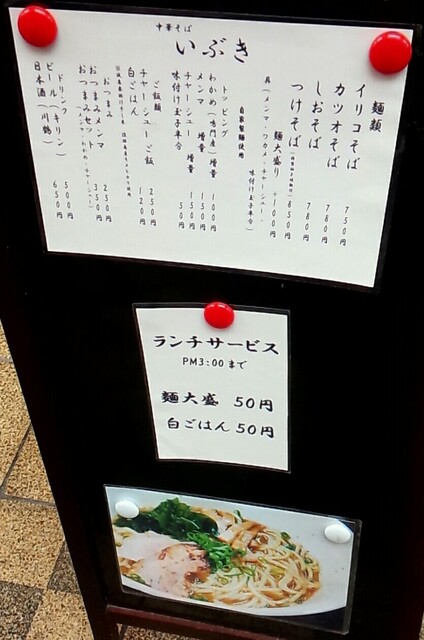 中華そば
いぶき
麺類
イリコそば 750円
カツオそば 780円
しおそば 780円
つけそば 850円
麺大盛り +100円
具(メンマ・ワカメ・チャーシュー・味付け玉子半分)
自家製麺使用
トッピング
わかめ(鳴門産)増量 100円
メンマ 増量 150円
チャーシュー 増量 150円
味付け玉子半分 50円
ご飯類
チャーシューご飯 250円
白ごはん 120円
おつまみ
おつまみメンマ 250円
おつまみセット 350円
ドリンク
ビール(キリン) 500円
日本酒(川鶴) 650円
ランチサービス
PM3:00まで
麺大盛 50円
白ごはん 50円